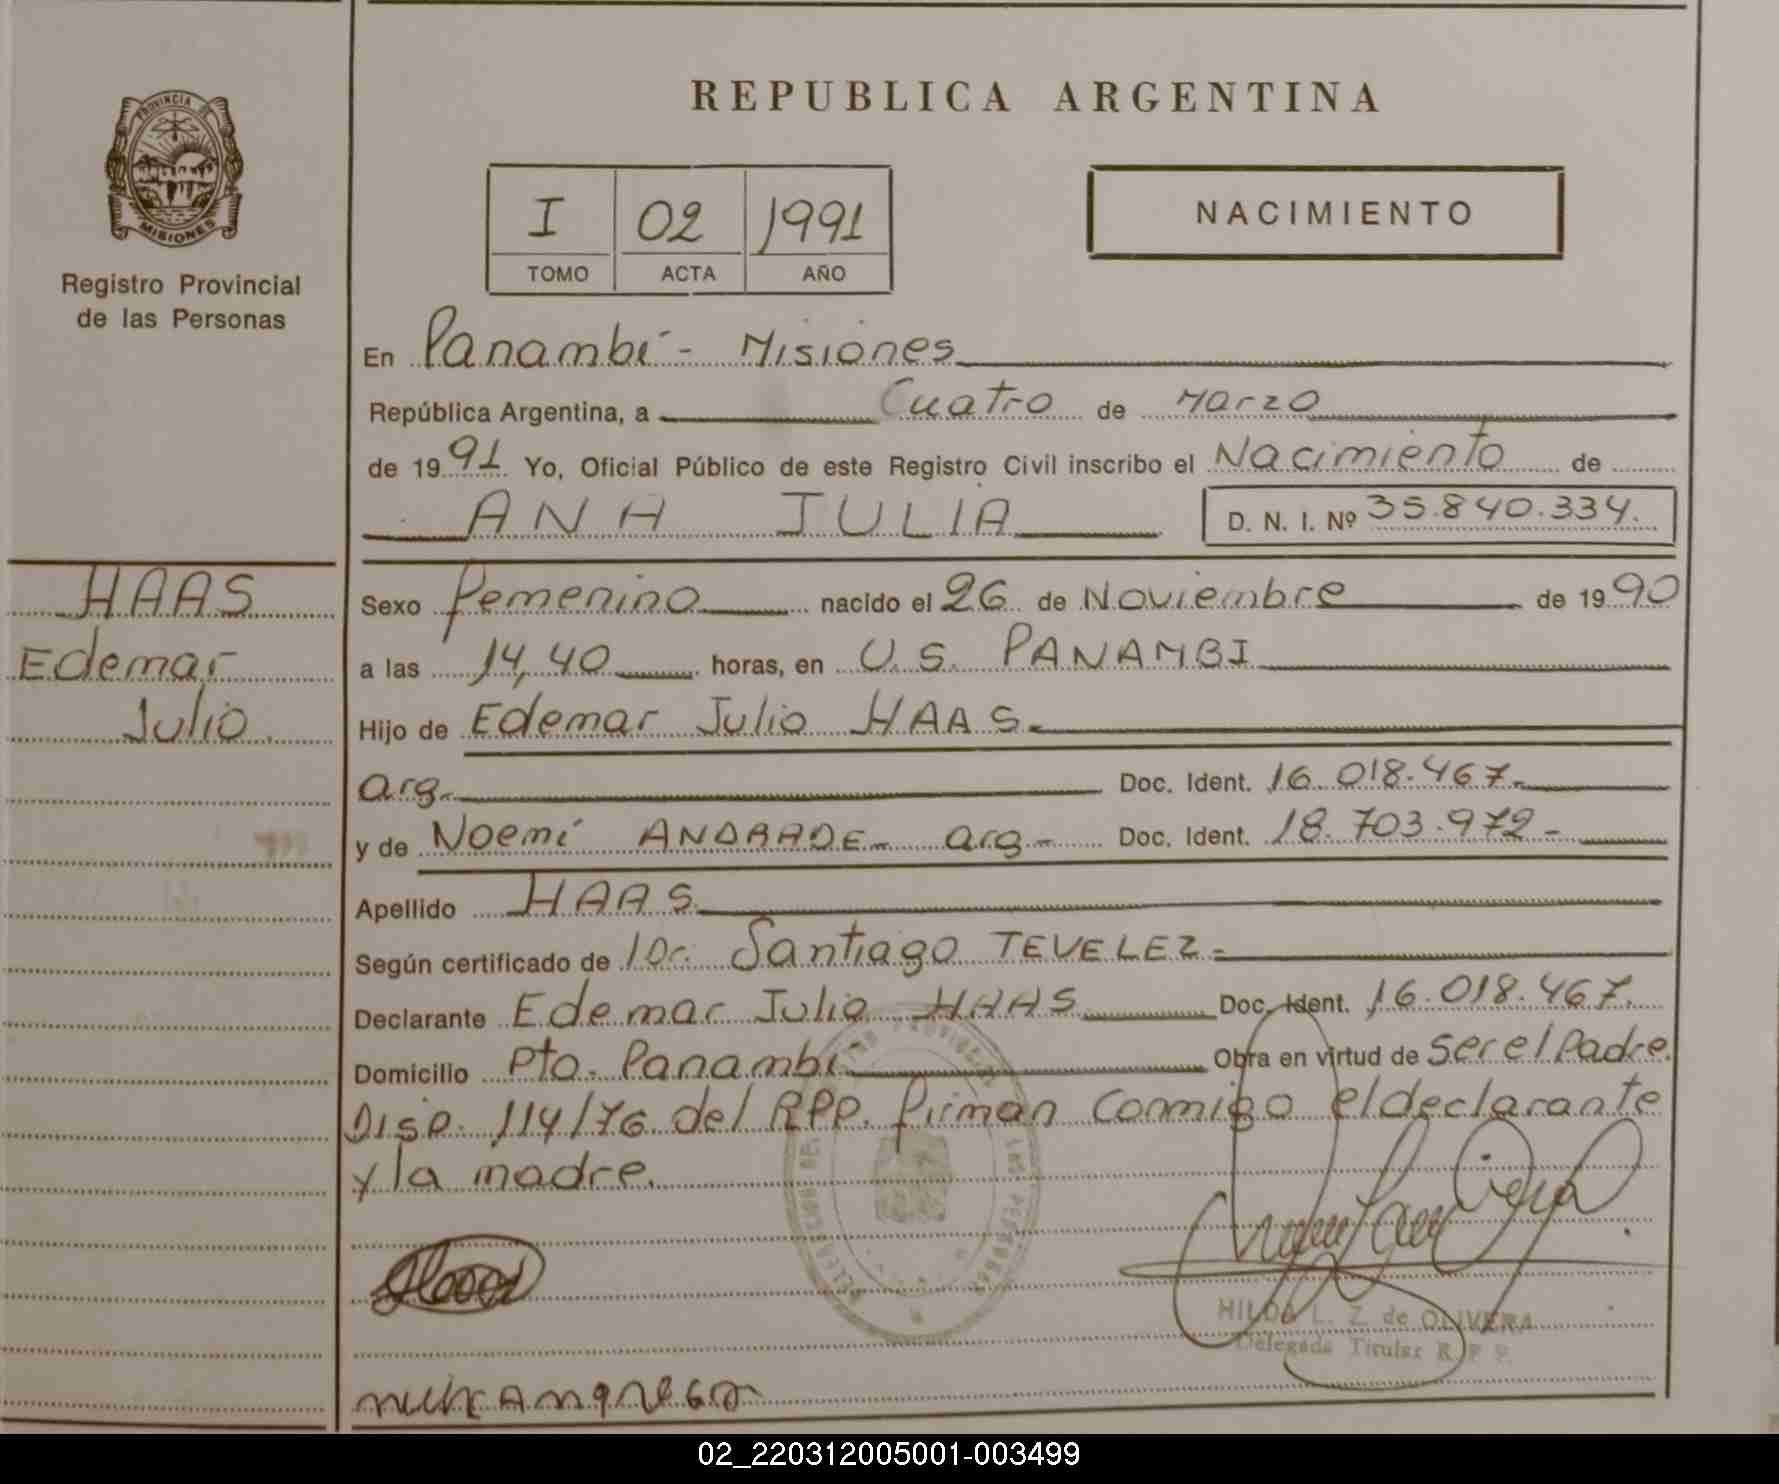 PROVINCIA DE
MISIONES
Registro Provincial
de las Personas
HAAS
Edemar
Julio.
REPUBLICA ARGENTINA
I 02 1991
TOMO ACTA AÑO
NACIMIENTO
En Panambí - Misiones
República Argentina, a Cuatro de Marzo
de 1991 Yo, Oficial Público de este Registro Civil inscribo el Nacimiento de
ANA JULIA D. N. I. Nº 35.840.334.
Sexo femenino nacido el 26 de Noviembre de 1990
a las 14,40 horas, en U.S. PANAMBI
Hijo de Edemar Julio HAAS.
arg. Doc. Ident. 16.018.467.
y de Noemí ANDRADE - arg - Doc. Ident. 18.703.972 -
Apellido HAAS
Según certificado de Dr. Santiago TEVELEZ -
Declarante Edemar Julio HAAS Doc. Ident. 16.018.467.
Domicilio Pto. Panambí Obra en virtud de Ser el Padre.
Disp. 114/76 del RPP. firman conmigo el declarante
y la madre.
HILDA L. Z. de OLIVERA
Delegada Titular R. P. P.
02_220312005001-003499